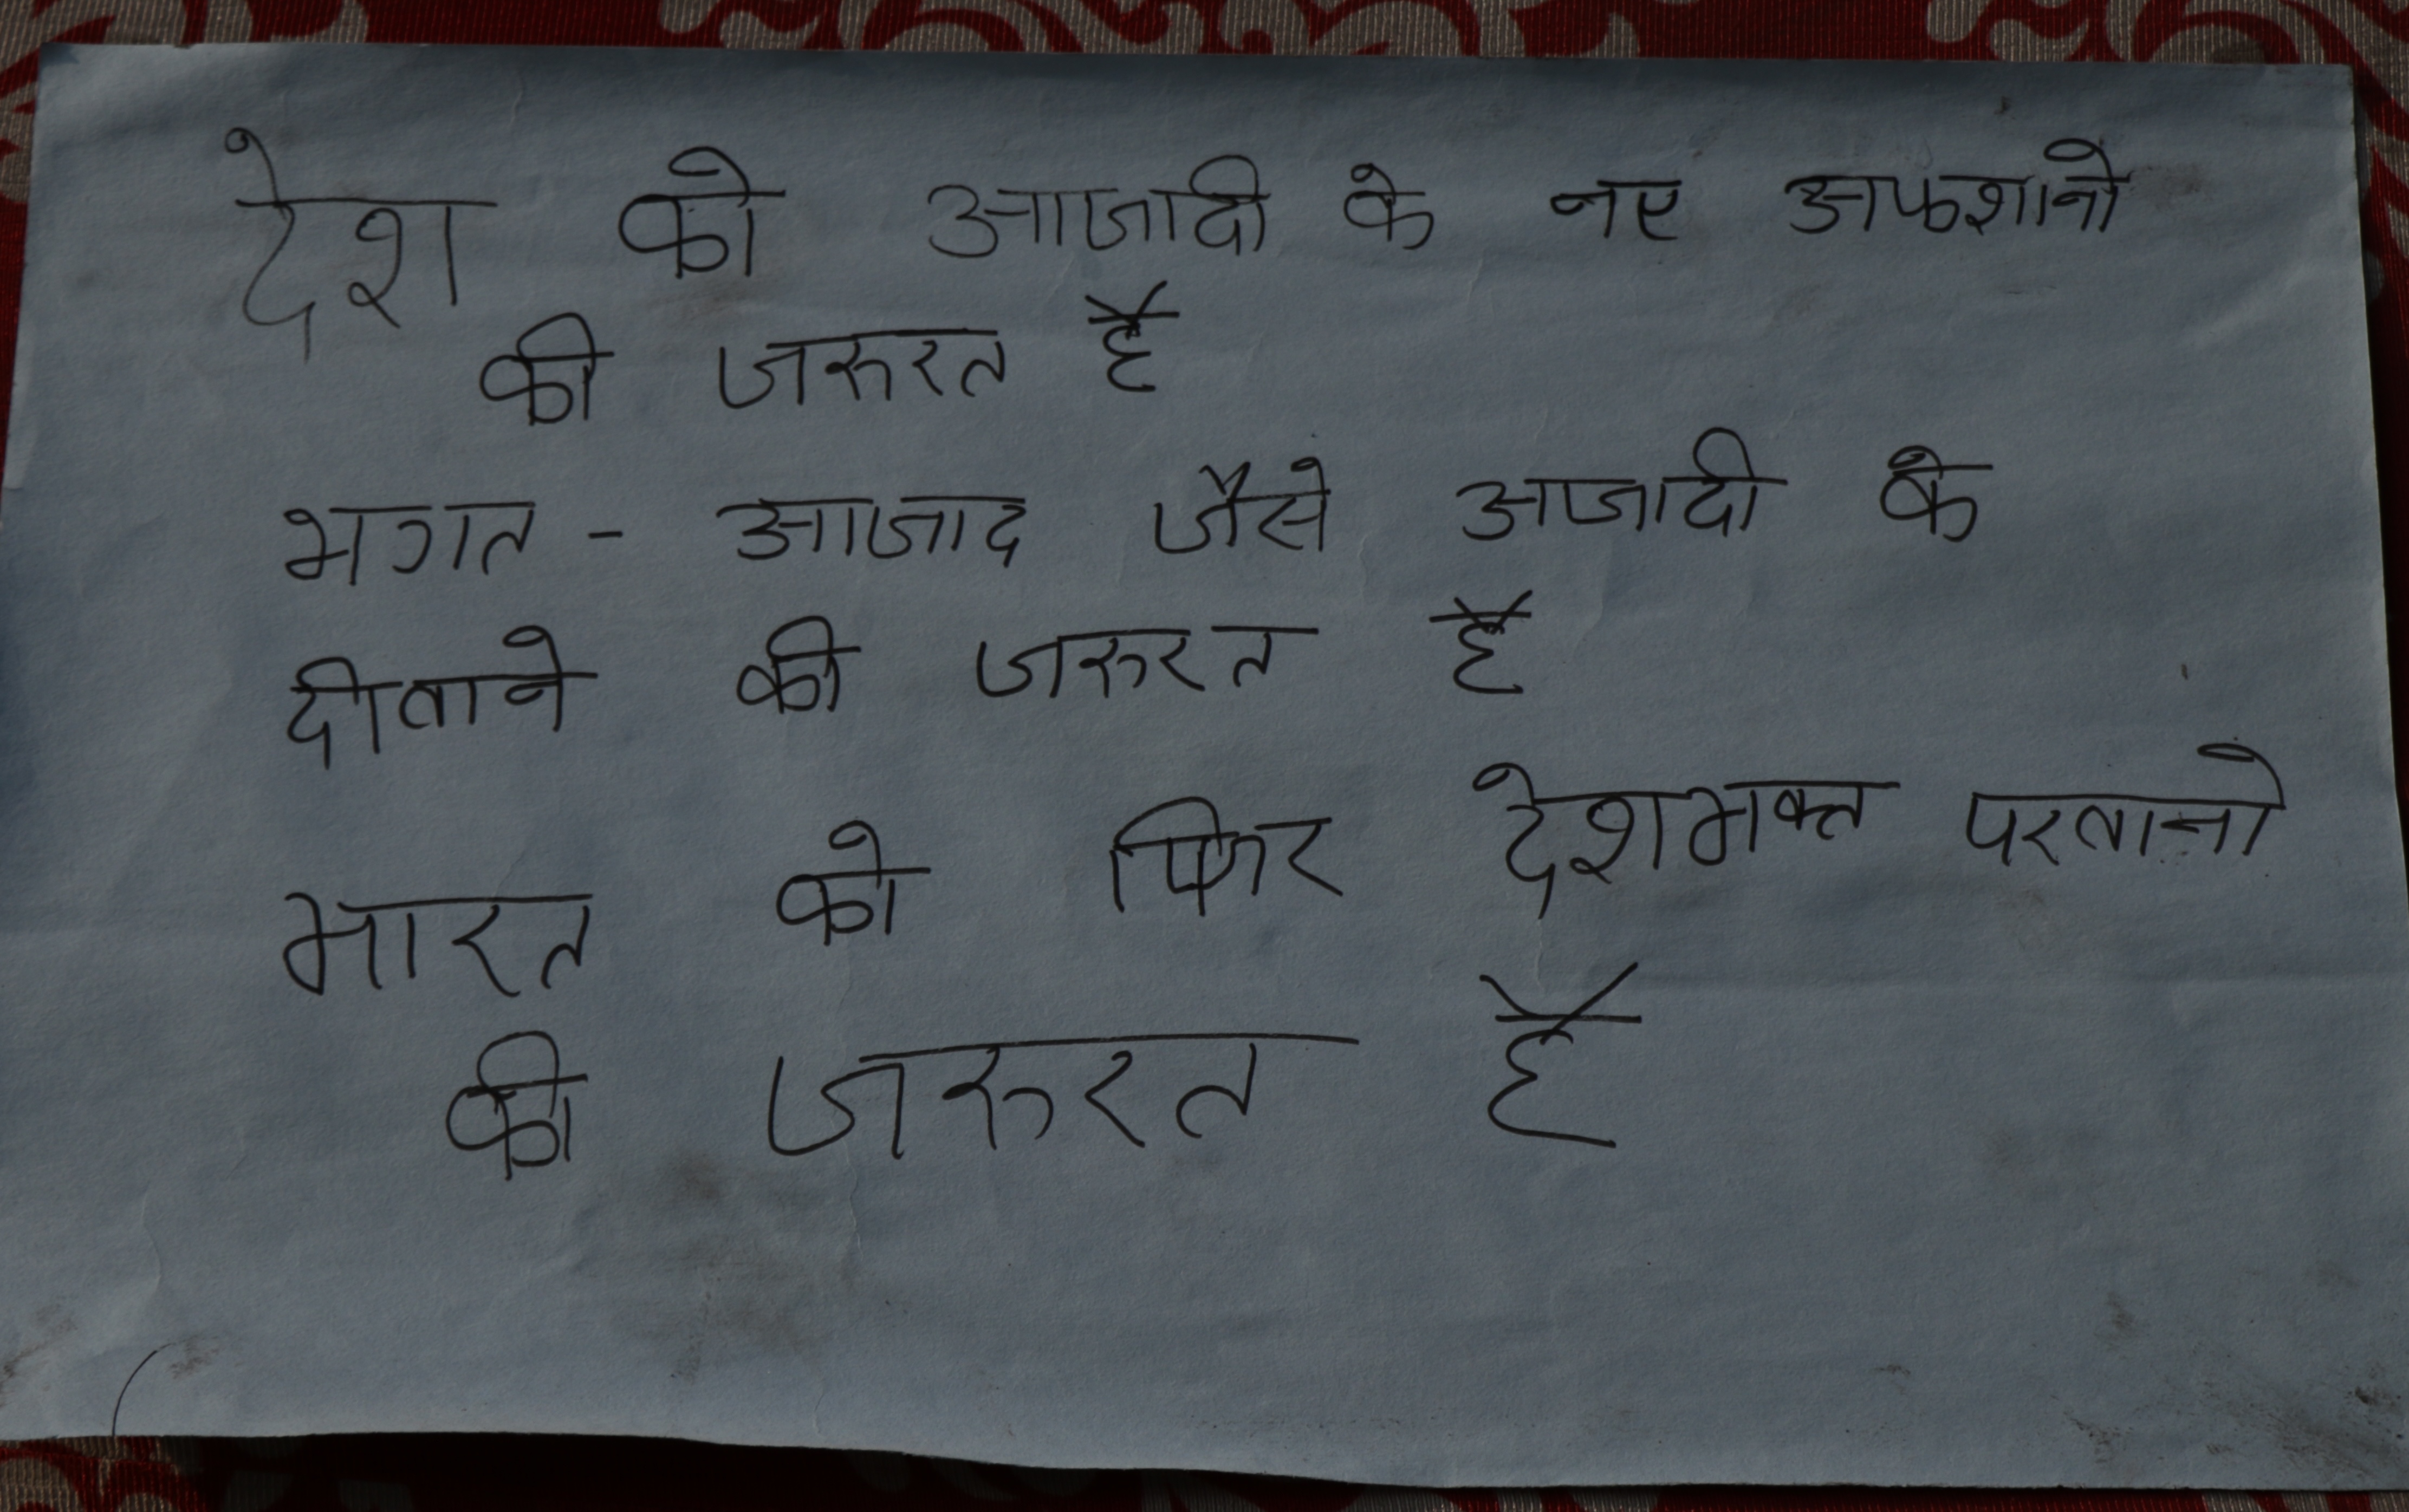 देश को आजादी के नए अफशानो
की जरुरत है
भगत - आजाद जैसे अजादी के
दीवाने की जरुरत है
भारत को फिर देशभक्त परवानो
की जरुरत है